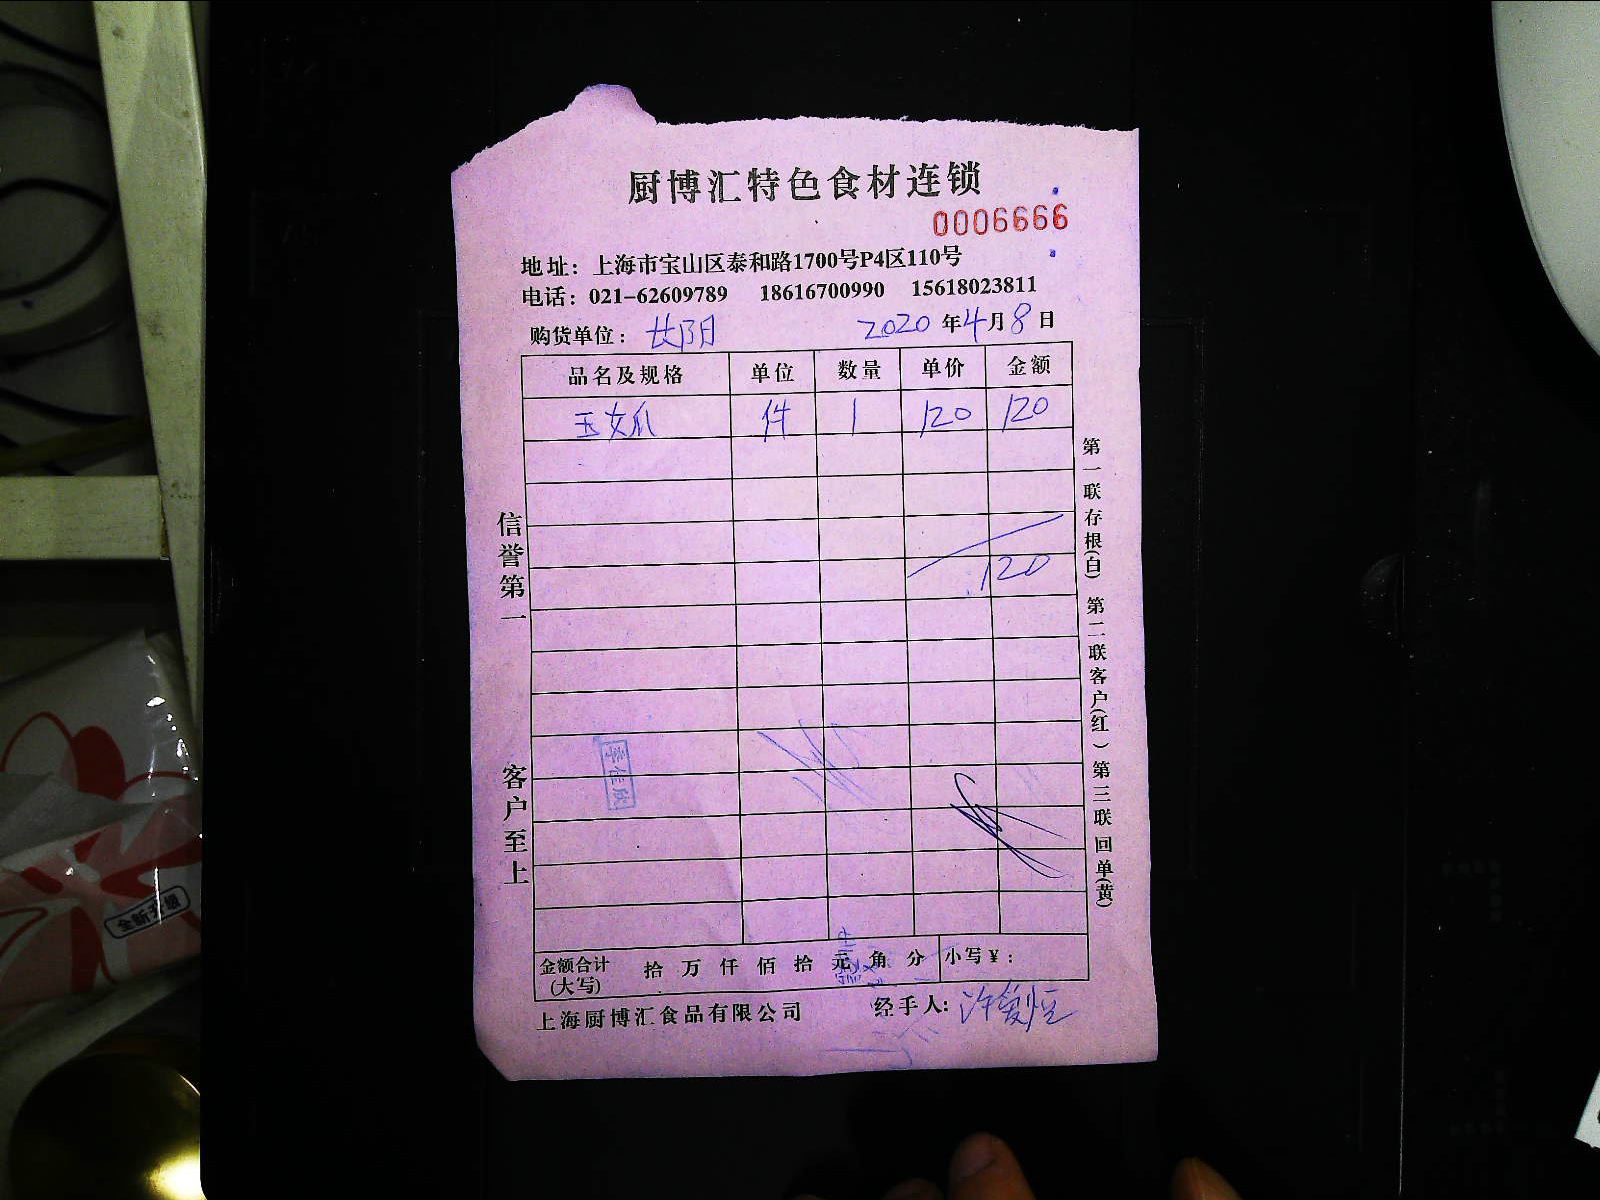 厨博汇特色食材连锁
0006666
地址：上海市宝山区泰和路1700号P4区110号
电话：021-62609789 18616700990 15618023811
购货单位： 2020年4月8日
品名及规格 单位 数量 单价 金额
玉女瓜 件 1 120 120
120
信誉第一
客户至上
第一联存根(白) 第二联客户(红) 第三联回单(黄)
季佳欣
金额合计 拾 万 仟 佰 拾 元 角 分 小写￥：
(大写)
上海厨博汇食品有限公司 经手人: 许
全新升级